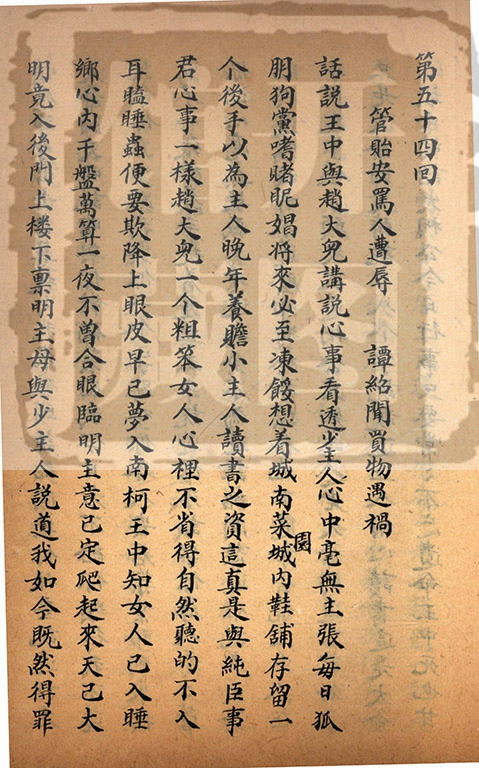 第五十四回
管貽安罵人遭辱　譚紹聞買物遇禍
話說王中與趙大兒講說心事看透少主人心中毫無主張每日狐
朋狗黨嗜賭昵娼將來必至凍餒想着城南菜園城內鞋舖存留一
个後手以為主人晚年養贍小主人讀書之資這真是與純臣事
君心事一樣趙大兒一个粗笨女人心裡不省得自然聽的不入
耳瞌睡蟲便要欺降上眼皮早已夢入南柯王中知女人已入睡
鄉心內千盤萬算一夜不曾合眼臨明主意已定爬起來天已大
明竟入後門上楼下禀明主母與少主人説道我如今既然得罪